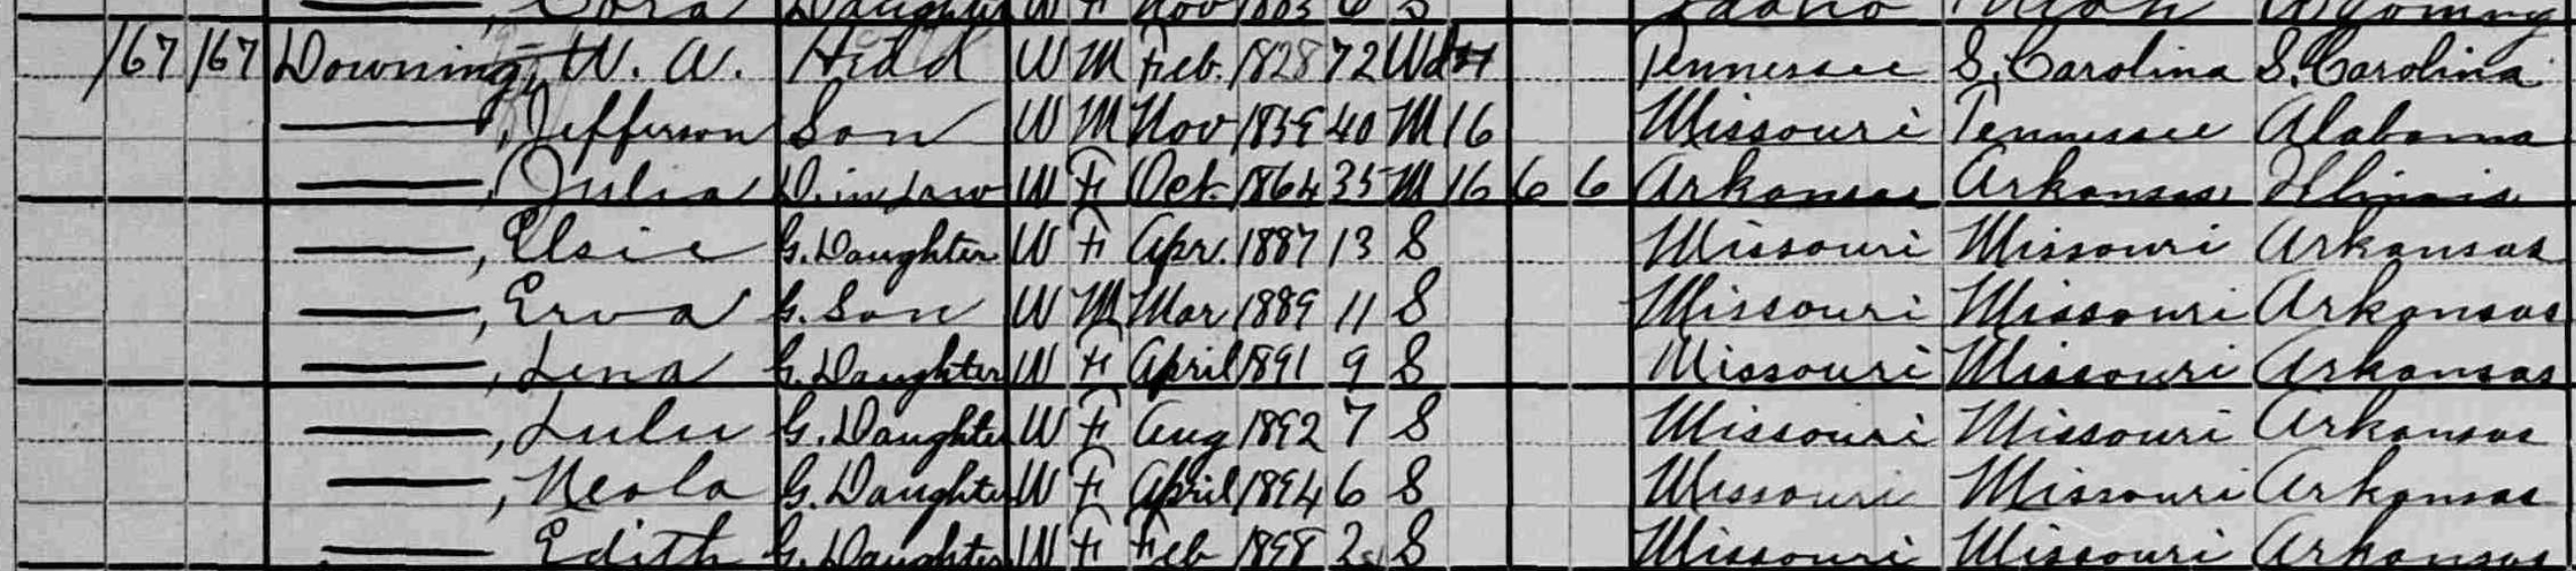 Cora Daughter W F Nov 1893 6 S Idaho Utah Wyoming
167 167 Downing, W. A. Head W M Feb. 1828 72 Wd Tennessee S. Carolina S. Carolina
———, Jefferson Son W M Nov 1859 40 M 16 Missouri Tennessee Alabama
———, Julia D. in Law W F Oct. 1864 35 M 16 6 6 Arkansas Arkansas Illinois
———, Elsie G. Daughter W F Apr. 1887 13 S Missouri Missouri Arkansas
———, Erva G. Son W M Mar 1889 11 S Missouri Missouri Arkansas
———, Lena G. Daughter W F April 1891 9 S Missouri Missouri Arkansas
———, Lulu G. Daughter W F Aug 1892 7 S Missouri Missouri Arkansas
———, Neola G. Daughter W F April 1894 6 S Missouri Missouri Arkansas
——— Edith G. Daughter W F Feb 1898 2 S Missouri Missouri Arkansas